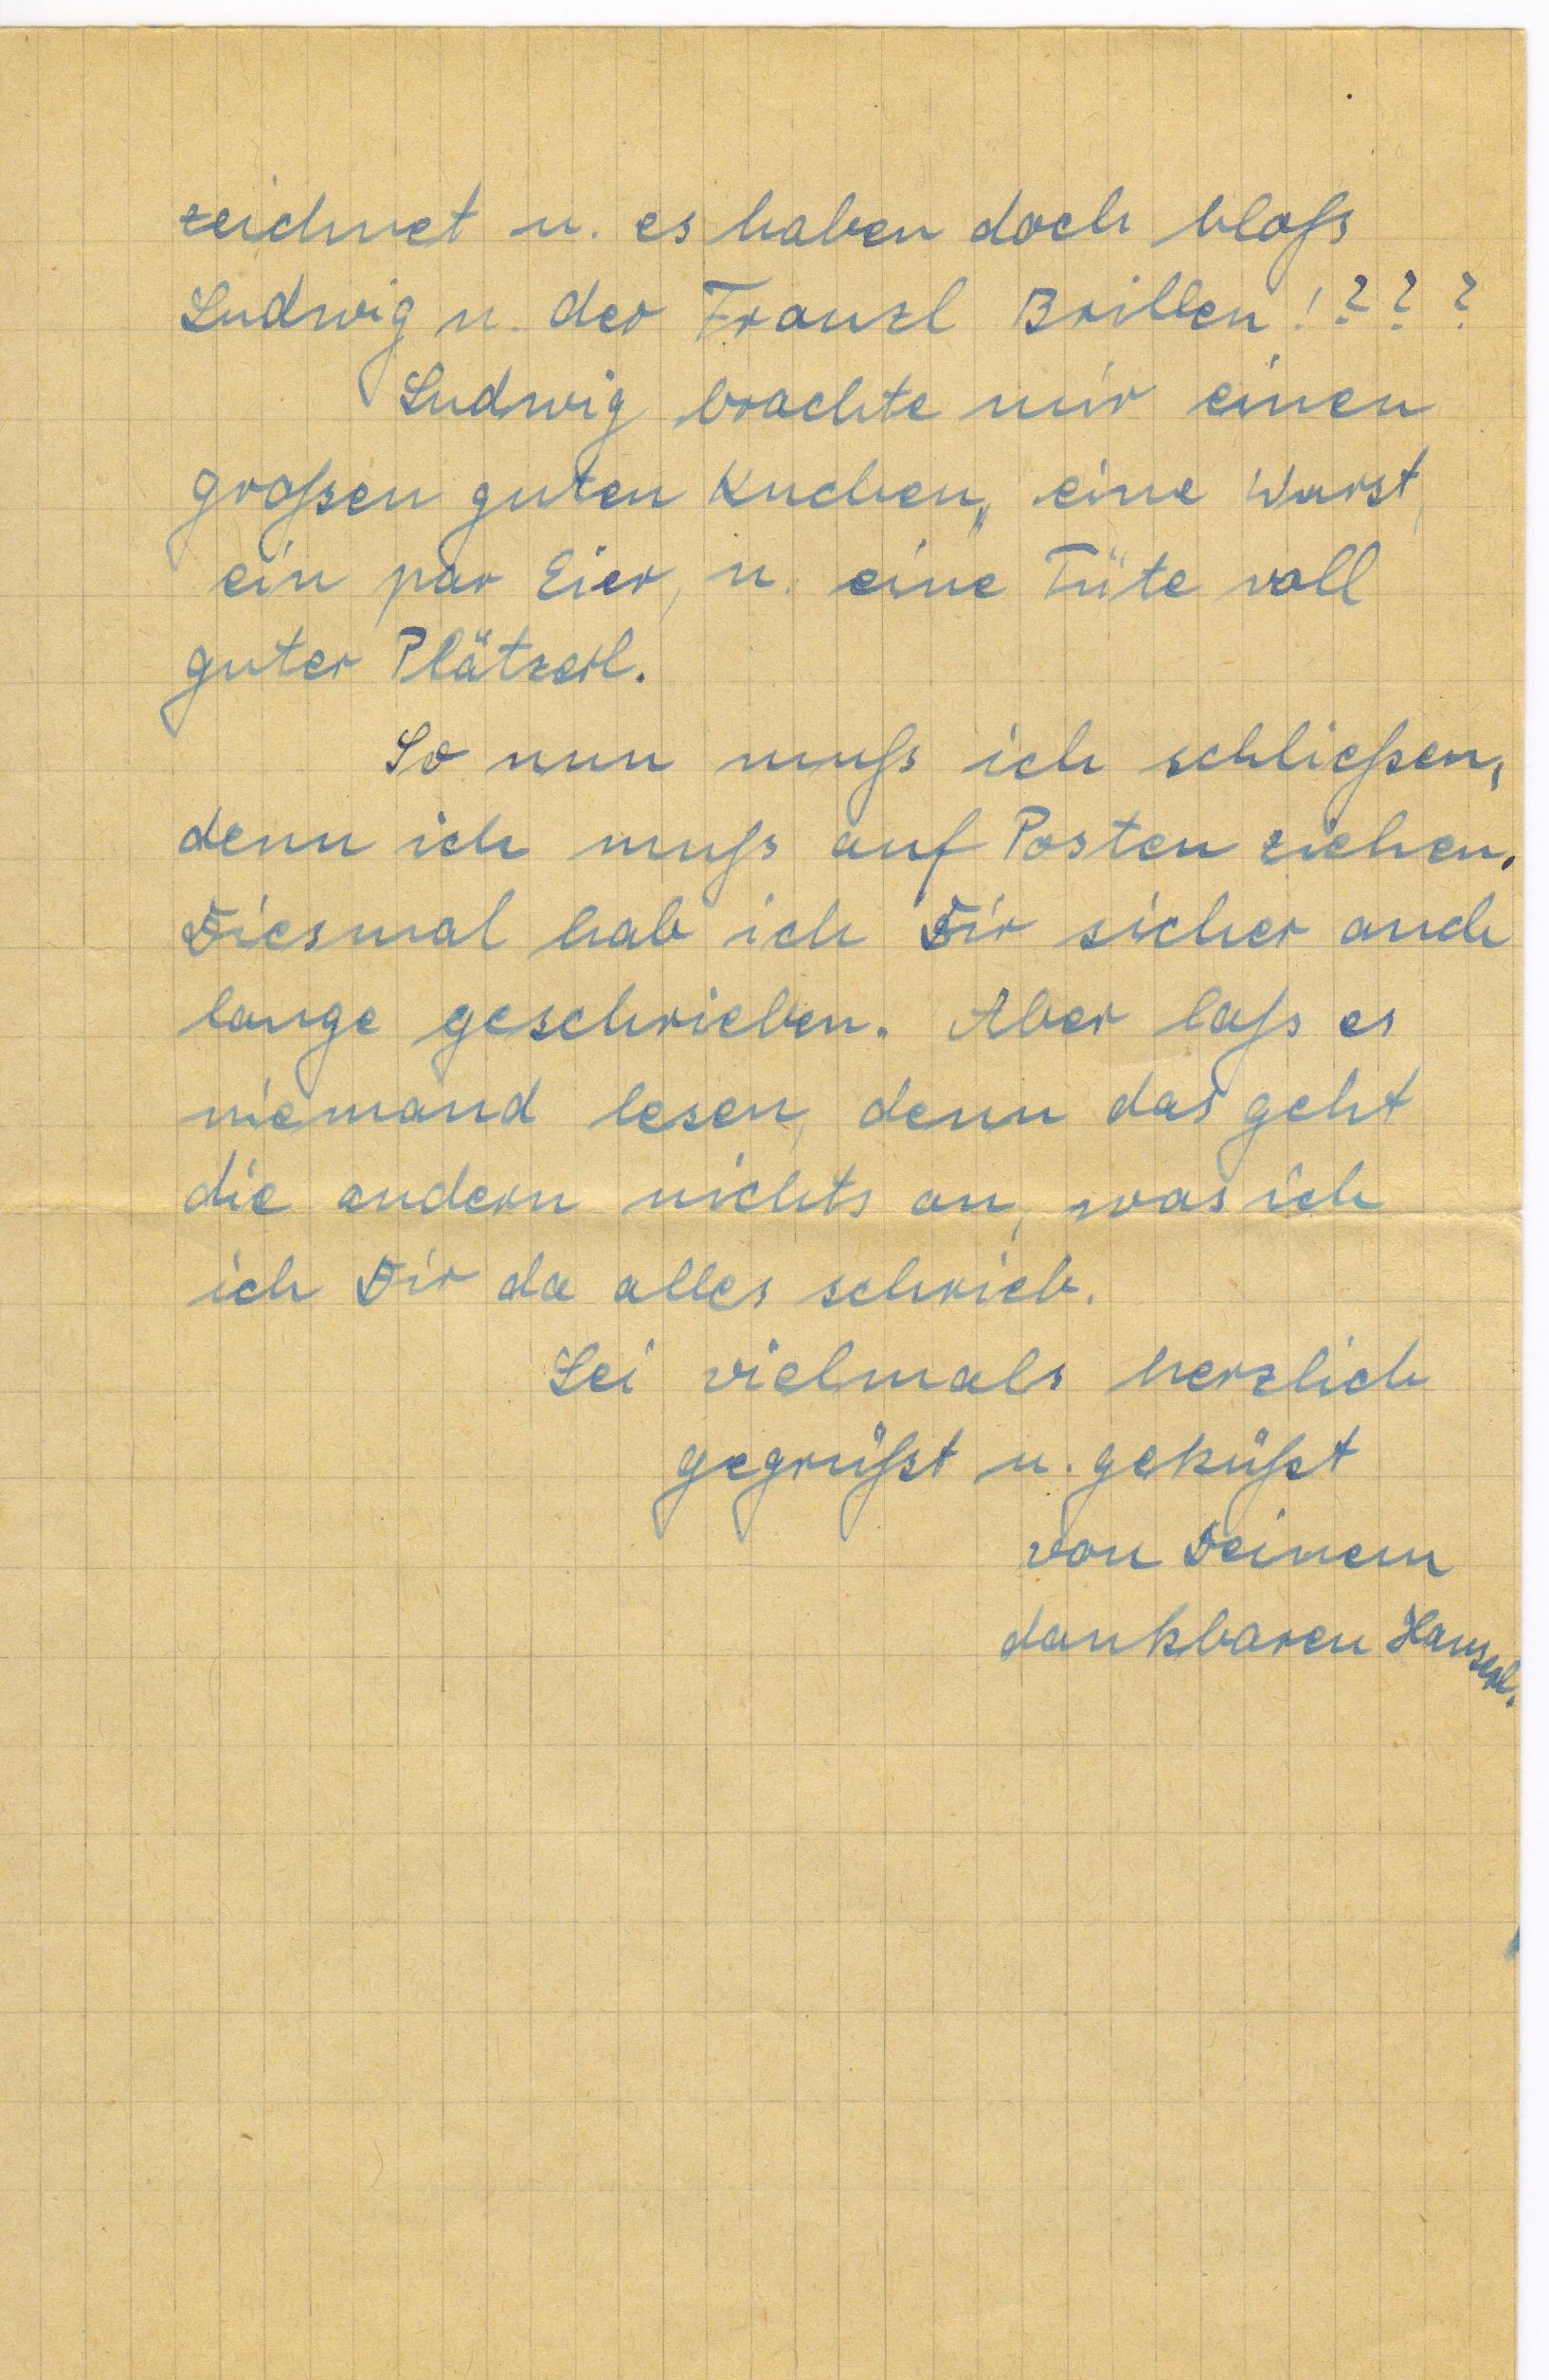 zeichnet u. es haben doch bloß
Ludwig u. der Franzl Brillen!???
Ludwig brachte mir einen
großen guten Kuchen,, eine Wurst,
ein par Eier, u. eine Tüte voll
guter Plätzerl.
So nun muß ich schließen,
denn ich muß auf Posten ziehen.
Diesmal hab ich Dir sicher auch
lange geschrieben. Aber laß es
niemand lesen, denn das geht
die andern nichts an, was ich
ich Dir da alles schrieb.
Sei vielmals herzlich
gegrüßt u. geküßt
von Deinem
dankbaren Hanserl.